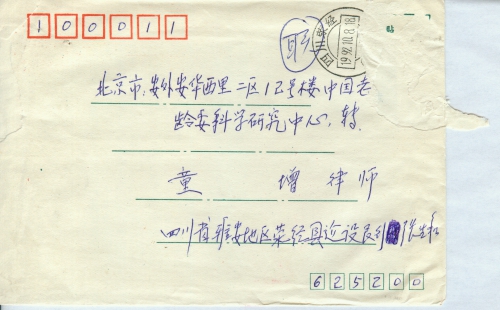 100011
贴
四川 荥经
1992.10.8.18
北京市,安外安华西里二区12号楼中国老
龄委科学研究中心,转
童 增 律师
四川省雅安地区荥经县 张生和
625200